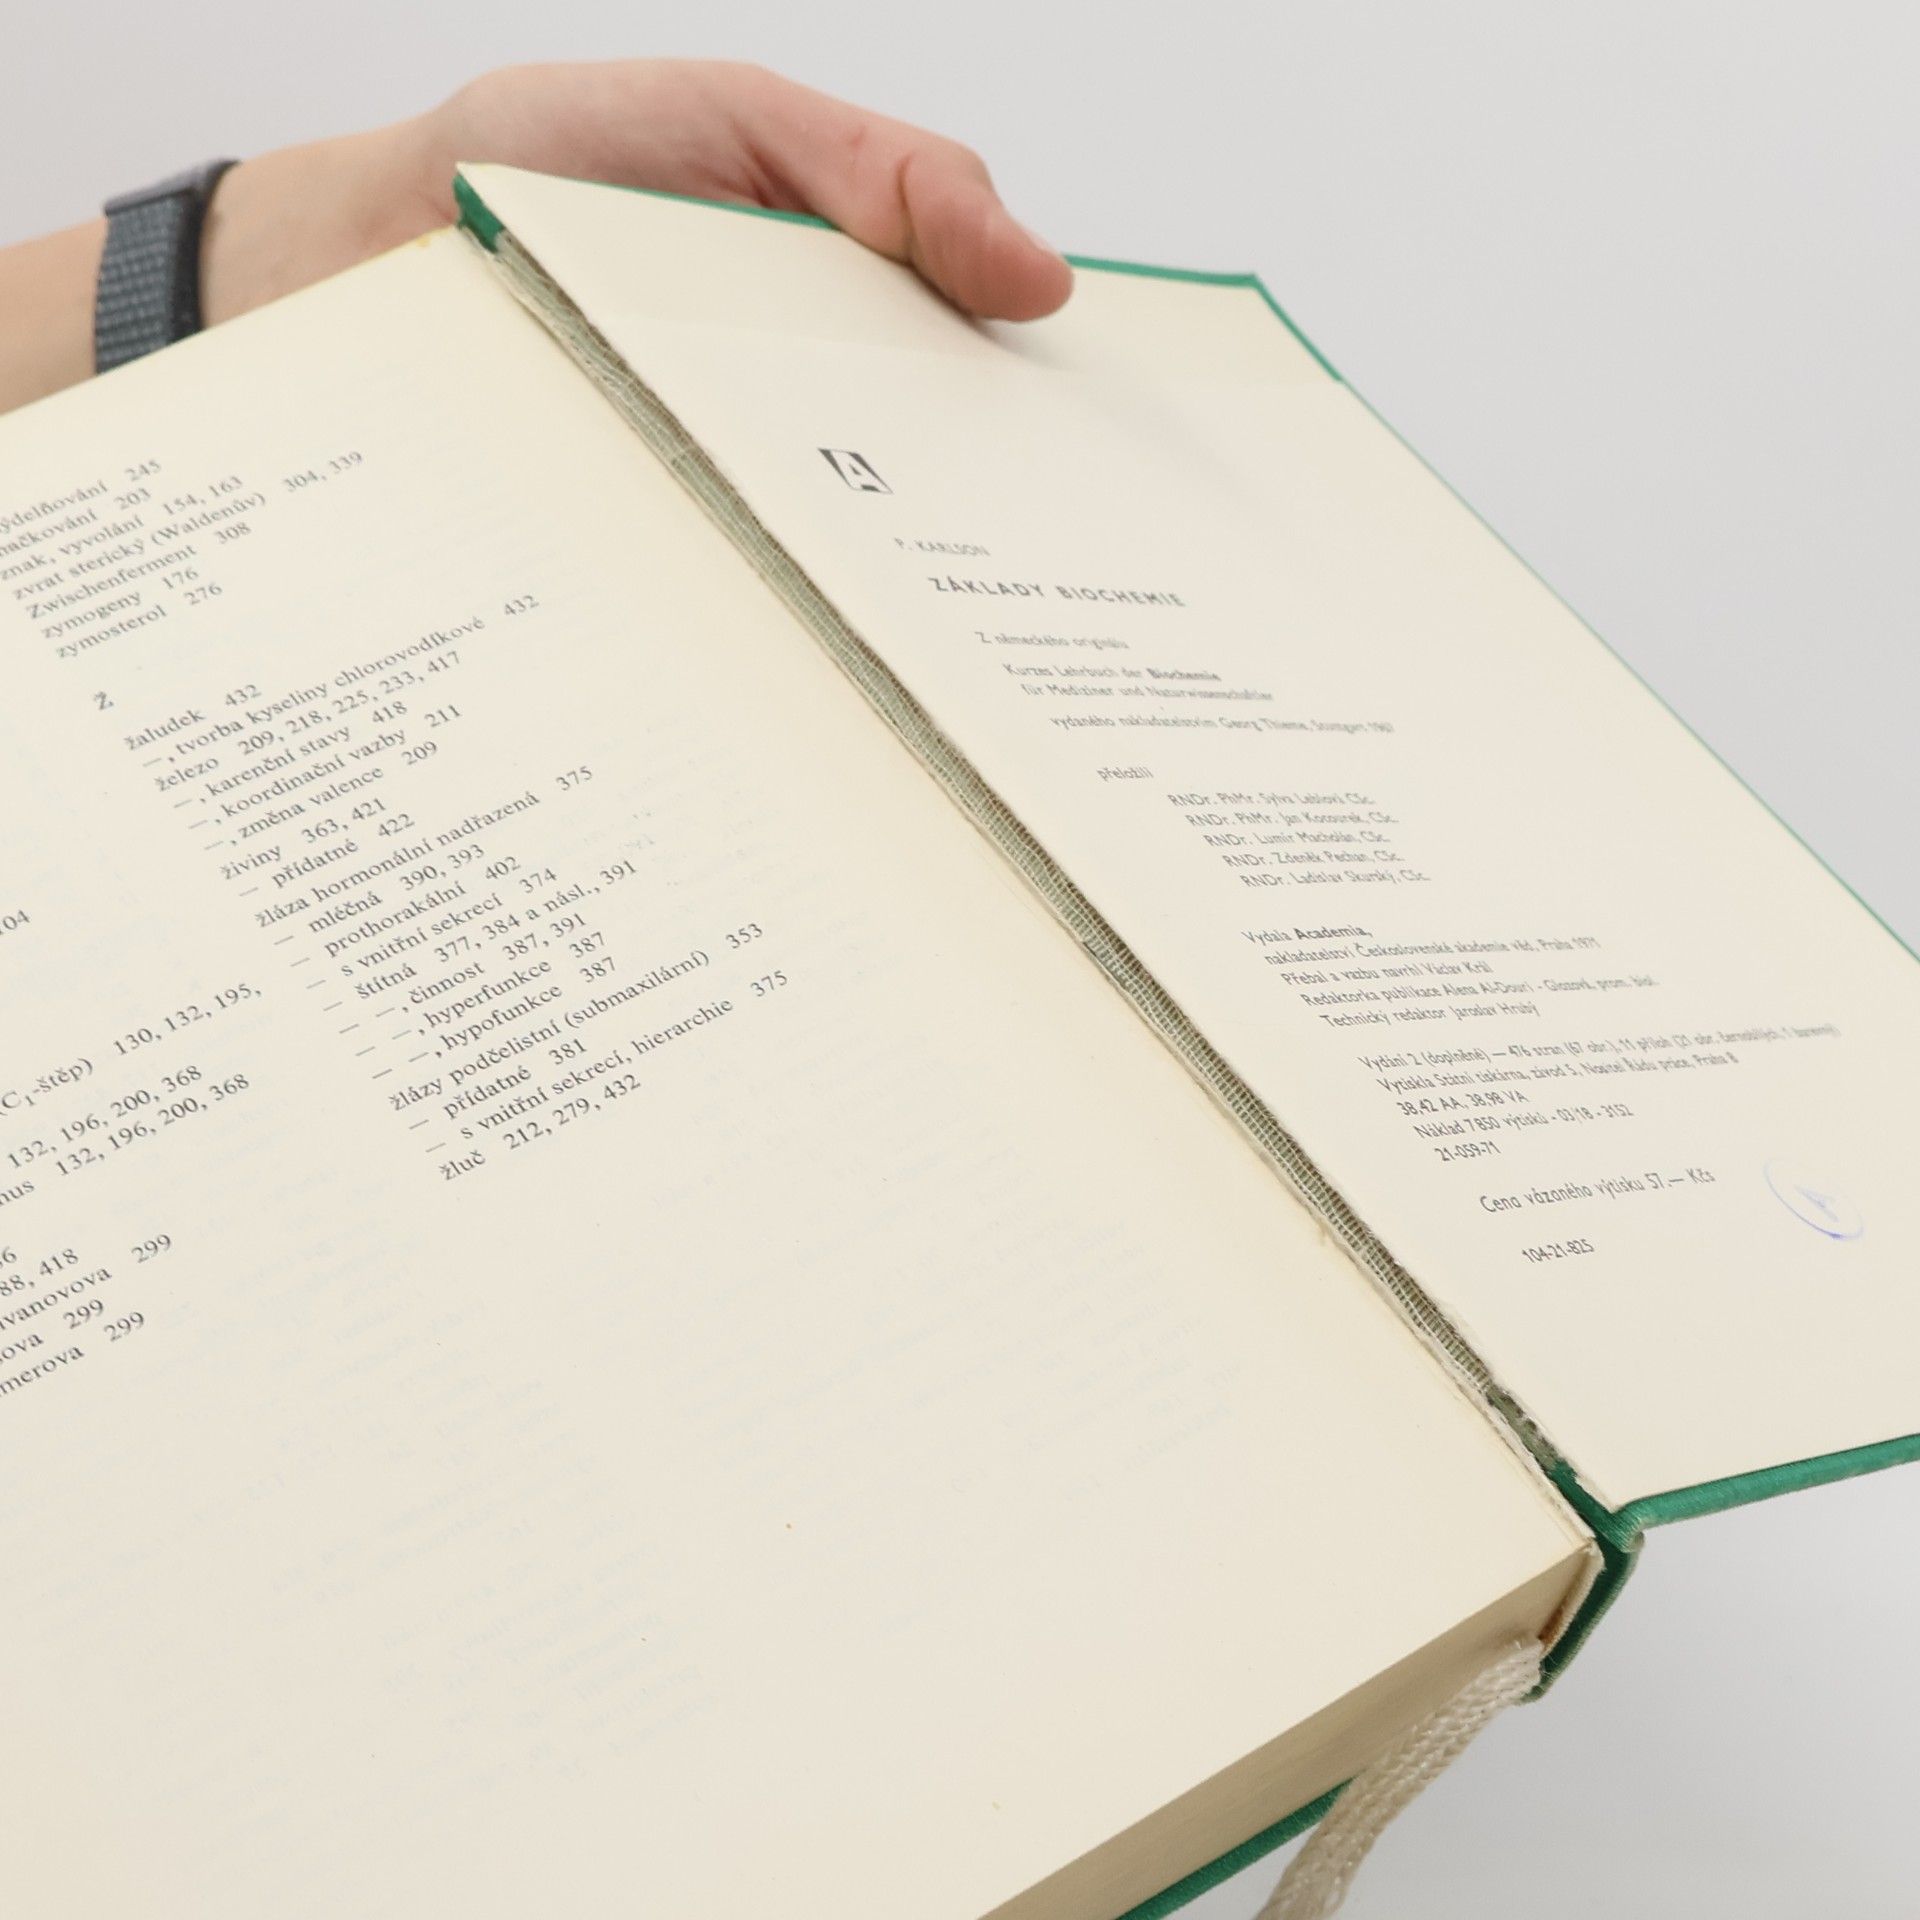 245
203
znak, vyvolání 154, 163
zvrat sterický (Waldenův) 304, 339
Zwischenferment 308
zymogeny 176
zymosterol 276
Ž
žaludek 432
—, tvorba kyseliny chlorovodíkové 432
železo 209, 218, 225, 233, 417
—, karenční stavy 418
—, koordinační vazby 211
—, změna valence 209
živiny 363, 421
— přídatné 422
žláza hormonální nadřazená 375
— mléčná 390, 393
— prothorakální 402
— s vnitřní sekrecí 374
— štítná 377, 384 a násl., 391
— —, činnost 387, 391
— —, hyperfunkce 387
— —, hypofunkce 387
žlázy podčelistní (submaxilární) 353
— přídatné 381
— s vnitřní sekrecí, hierarchie 375
žluč 212, 279, 432
(C₁-štěp) 130, 132, 195,
132, 196, 200, 368
132, 196, 200, 368
418
299
299
299
A
P. KARLSON
ZÁKLADY BIOCHEMIE
Z německého originálu
Kurzes Lehrbuch der Biochemie
für Mediziner und Naturwissenschaftler
vydaného nakladatelstvím Georg Thieme, Stuttgart 1967
přeložili
RNDr. PhMr. Sylva Leblová CSc.
RNDr. PhMr. Jan Kocourek, CSc.
RNDr. Lumír Macholán, CSc.
RNDr. Zdeněk Pechan, CSc.
RNDr. Ladislav Skurský, CSc.
Vydala Academia,
nakladatelství Československé akademie věd, Praha 1971
Přebal a vazbu navrhl Václav Král
Redaktorka publikace Alena Al-Douri - Glozová, prom. biol.
Technický redaktor Jaroslav Hrubý
Vydání 2. (doplněné) — 476 stran (67 obr.), 11 příloh (21 obr. černobílých, 1 barevný)
Vytiskla Státní tiskárna, závod 5, Nositel Řádu práce, Praha 8
38,42 AA, 38,98 VA
Náklad 7 850 výtisků - 03/18 - 3152
21-059-71
Cena vázaného výtisku 57.— Kčs
104-21-825